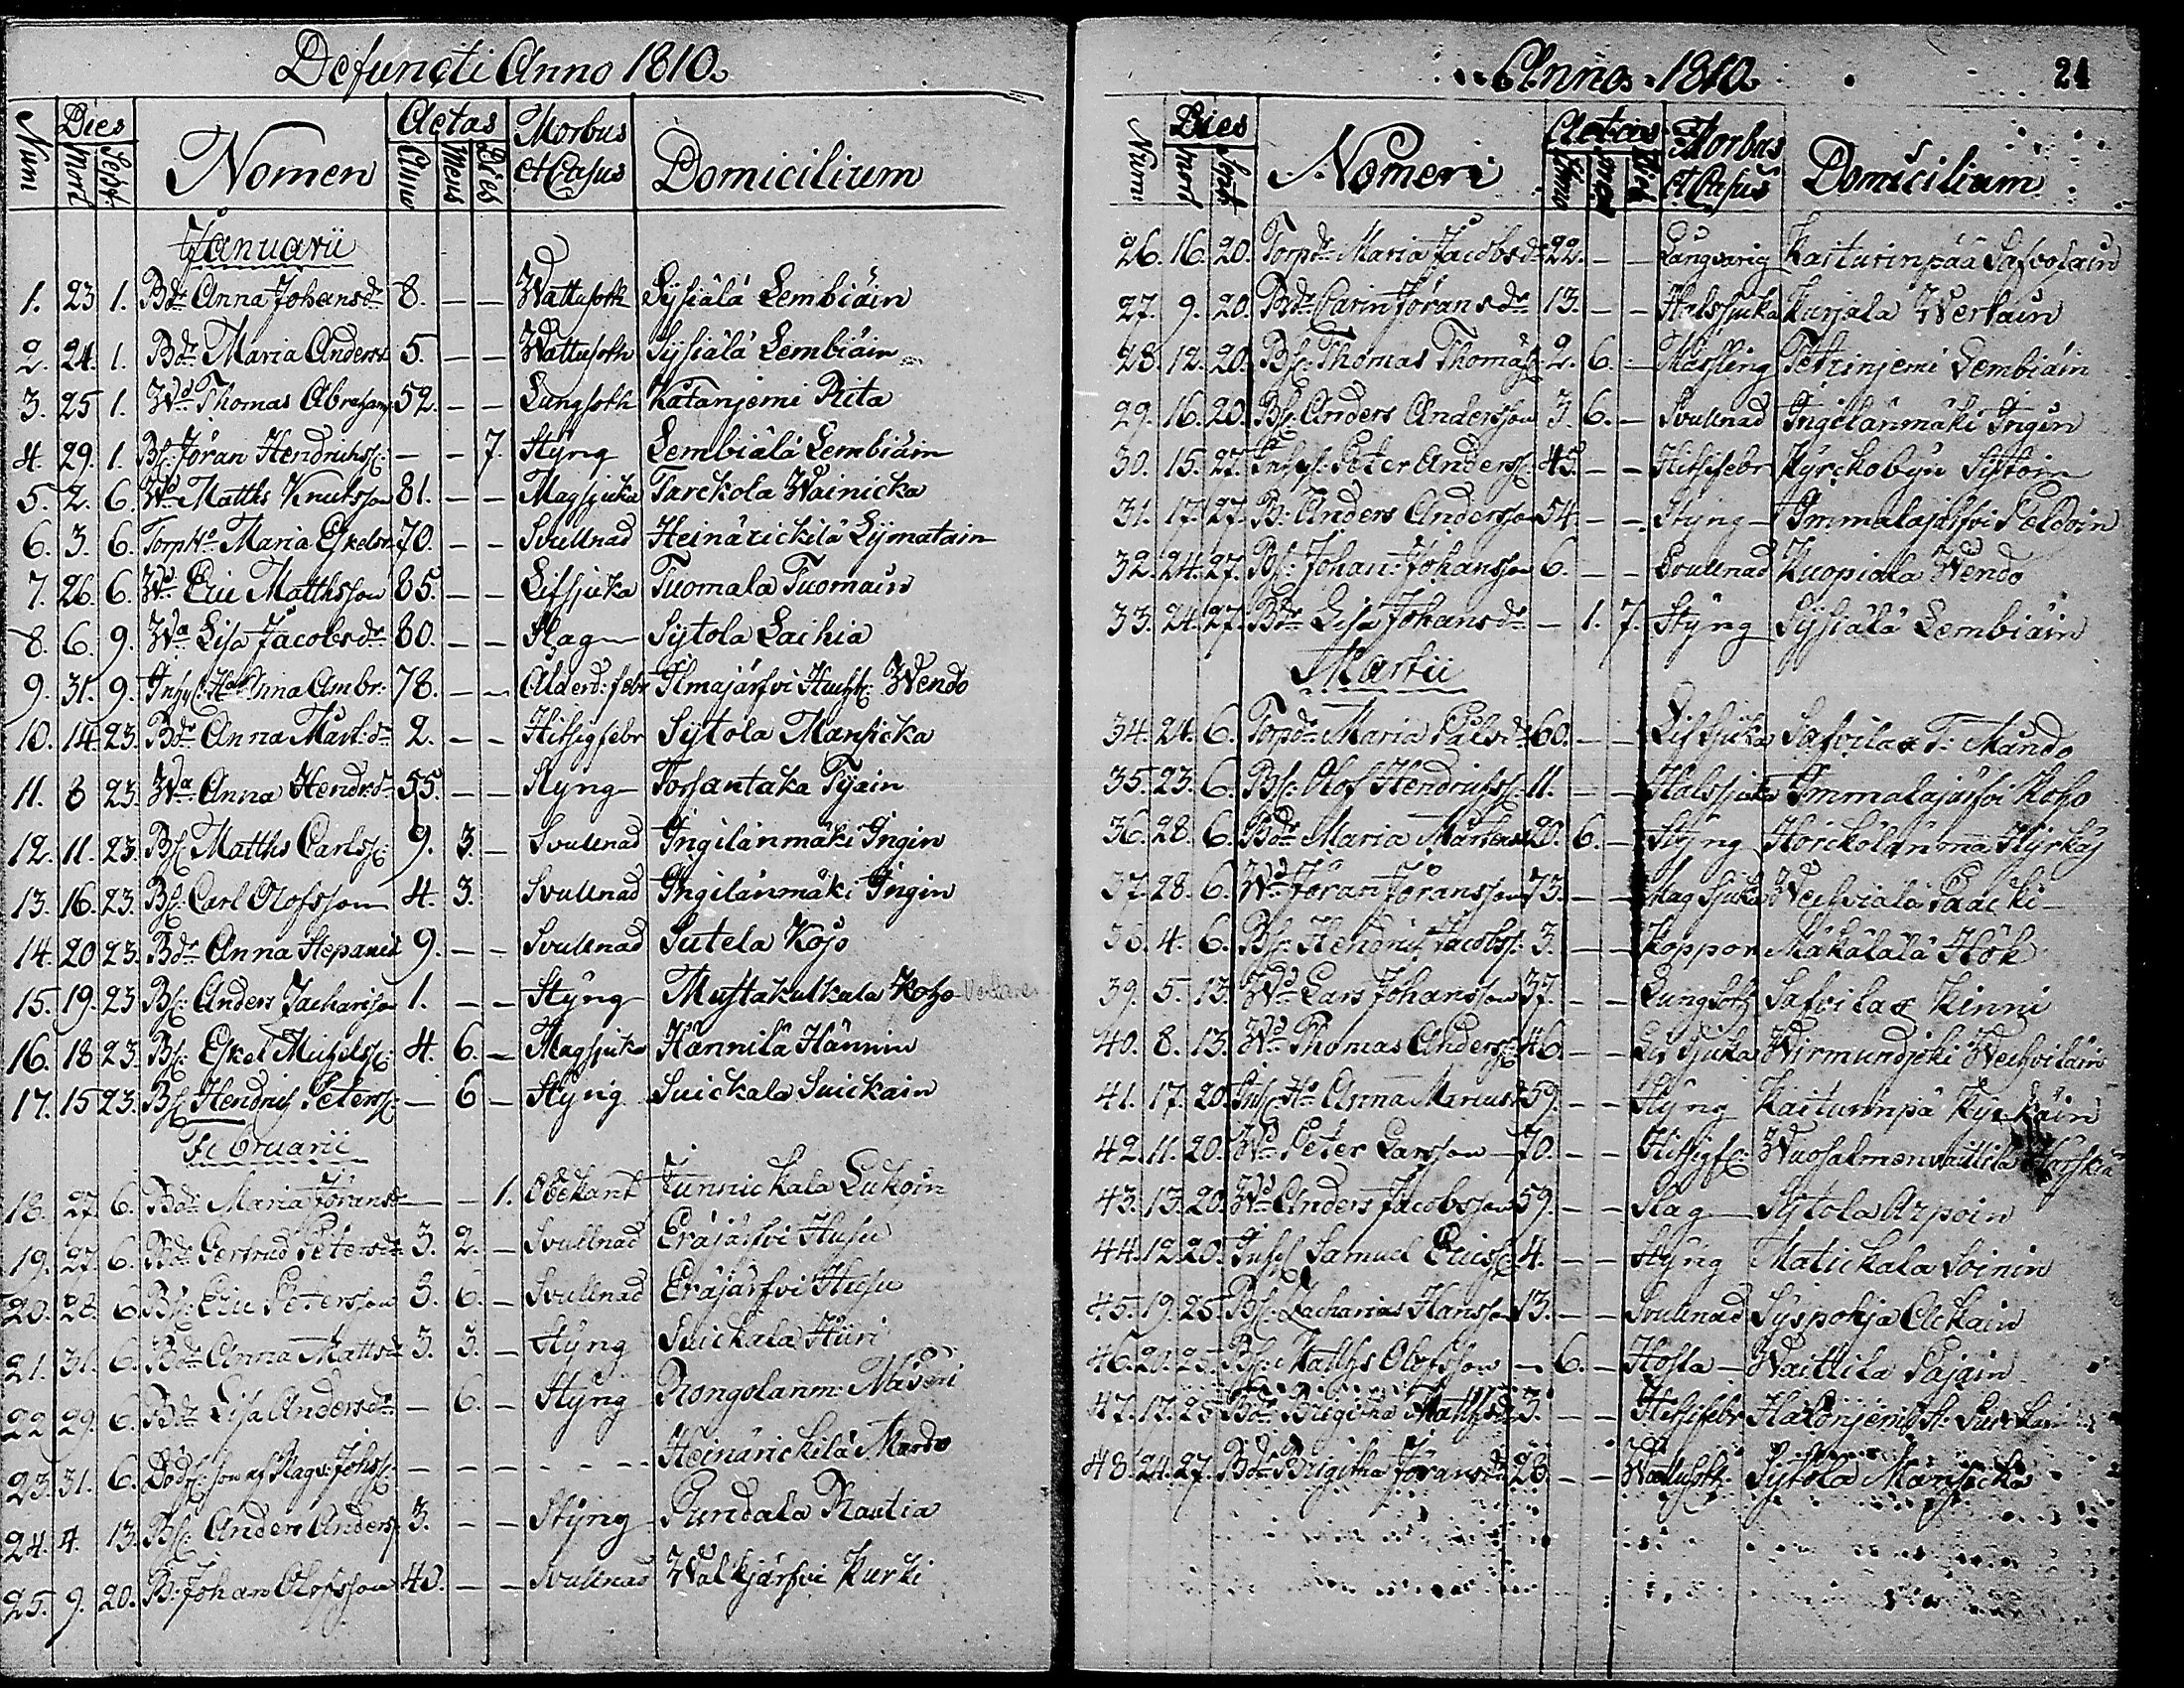 Defuncti Anno 1810.
Num Dies Mort Sept Nomen Aetas Anno Mens Dies Morbus et Casus Domicilium
Januarii
1. 23 1. Bdr Anna Johansdr 8. — — Wattusoth Sijsiälä Lembiäin
2. 24. 1. Bdr Maria Andersd 5. — — Wattusoth Sijsiälä Lembiäin
3. 25 1. Wd Thomas Abrahams 52. — — Lungsoth Katanjemi Rita
4. 29. 1. Bs: Jöran Hendrichss: — — 7. Styng Lembiälä Lembiäin
5. 2. 6. Wd Matths Knutsson 81. — — Magsjuka Tarckola Wainicka
6. 3. 6. Torp Ha Maria Eskelsd 70. — — Svullnad Heinärickilä Lijmatain
7. 26. 6. Wd Eric Matthsson 85. — — Lifsjuka Tuomala Tuomain
8. 6. 9. Wa Lisa Jacobsdr 80. — — Slag Sijtola Laihia
9. 31. 9. Inhys: Ha Anna Ambr: 78. — — Ålderd: febr Ilmajärfvi Wendo
10. 14. 23. Bdr Anna Mårt:dr 2. — — Hitsigfebr Sijtola Mansicka
11. 8 23. Wa Anna Hendr:dr 55. — — Styng Torsantaka Tijain
12. 11. 23. Bs: Matths Carlss: 9. 3. — Svullnad Ingilänmäki Ingin
13. 16. 23. Bs: Carl Olofsson 4. 3. Svullnad Ingilänmäki Ingin
14. 20 23. Bdr Anna Stepansd 9. — — Svullnad Sutela Koso
15. 19. 23 Bs: Anders Zachariss 1. — — Styng Mustakulkala Koho
16. 18 23. Bs: Eskel Michelss: 4. 6. — Magsjuka Hännilä Hännin
17. 15 23. Bs: Hendrich Peterss: — 6 — Styng Suickala Suickain
Februarii
18. 27 6. Bdr Maria Jöransdr — — 1. Obekant Junnickala Lukoin
19. 27. 6. Bdr Gertrud Petersdr 3. 2. — Svullnad Eräjärfvi Husu
20. 28. 6. Bs: Eric Petersson 3. 6. — Svullnad Eräjärfvi Husu
21. 31. 6. Bdr Anna Mattsdr 3. 3. — Styng Suickala Hiiri
22 29. 6. Bdr Lisa Andersdr — 6. — Styng Rongolanm:
23. 31. 6. Dödf: son af Johss: — — — — — — Heinärickilä Mando
24. 4. 13. Bs: Anders Anderss 3. — — Styng Pundala Rautia
25. 9. 20. B: Johan Olofsson 40. — — Svullnad Walkjärfvi Kurki
Anno 1810. 24
Num Dies Mort Sept Nomen Aetas Anno Mens Dies Morbus et Casus Domicilium
26. 16. 20. Torpdr Maria Jacobsdr 22. — — Långvarig Kaiturinpää Safvolain
27. 9. 20. Bdr Carin Jöransdr 13. — — Halssjuka Kurjala Wertain
28. 12. 20. Bs: Thomas Thomass 2. 6. — Mässling Petrinjemi Lembiäin
29. 16. 20. Bs: Anders Andersson 3. 6. — Svullnad Ingilänmäki Ingin
30. 15. 27. Inhys: Peter Anderss: 45. — — Hitsifebr Kyrckobyn
31. 17. 27. B: Anders Andersson 54. — — Styng Immalajärfvi Peldoin
32. 24. 27. Bs: Johan Johansson 6. — — Svullnad Kuopiala Wendo
33. 24. 27. Bdr Lisa Johansdr — 1. 7. Styng Sijsiälä Lembiäin
Martii
34. 24. 6. Torpdr Maria Pålsdr 60. — — Lifsjuka Safvilax T: Mando
35. 23. 6. Bs: Olof Hendrichss: 11. — — Halssjuka Immalajärfvi Koho
36. 28. 6. Bdr Maria Mårtensd 20. 6. — Styng
37. 28. 6. Wd Jöran Jöransson 73. — — Magsjuka Wechviälä Paacki
38. 4. 6. Bs: Hendrich Jacobss: 3. — — Koppor Mäkälälä Hök
39. 5. 13. Wd Lars Johansson 37. — — Lungsoth Safvilax Kinni
40. 8. 13. Wd Thomas Anderss 46. — — Lifsjuka Wirmundjoki Wechviläin
41. 17. 20. Inhs: Ha Anna Mariusd 59. — — Styng Kaiturinpä
42. 11. 20. Wd Peter Larsson 70. — — Hitsigf: Wuosalmen
43. 13. 20. Wd Anders Jacobsson 59. — — Slag Sijtola Arpoin
44. 12. 20. Inhs: Samuel Ericss: 4. — — Styng Matickala Soinin
45. 19. 25. Bs: Zacharias Hansson 13. — — Svullnad Syspohja Ackain
46. 20. 25. Bs: Matths Olofsson — 6. — Hosta Waittila Pajain
47. 17. 25. Bdr Brigitha Matthsdr 3. — — Hitsifebr
48. 24. 27. Bdr Brigitha Jöransdr 28. — — Wattusoth Sijtola Mansicka